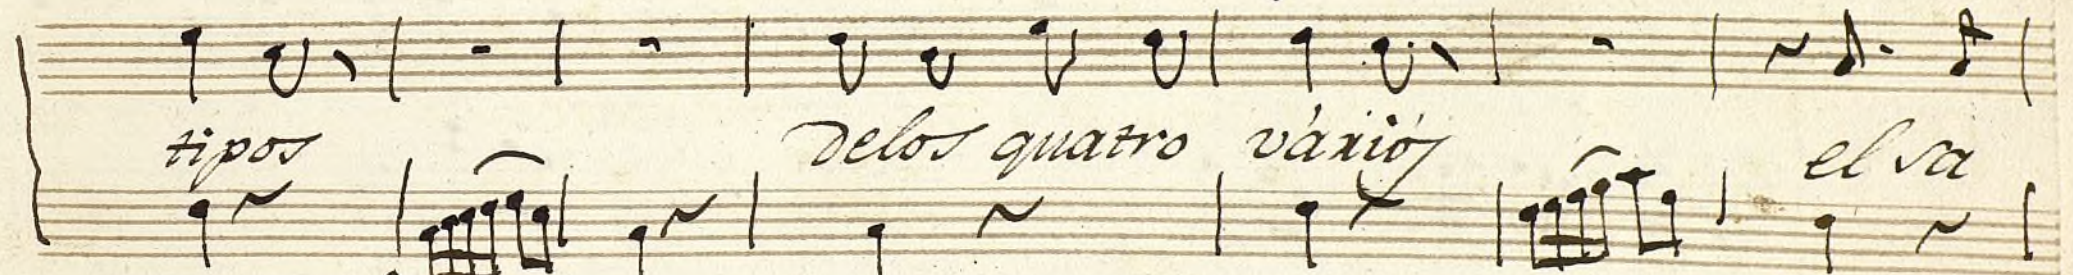 tipos delos quatro varios el sa